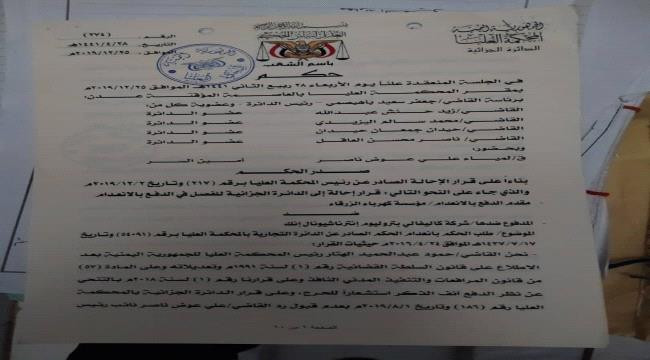 الجمهورية اليمنية
المحكمة العليا
الدائرة الجزائية
بسم الله الرحمن الرحيم
الرقم: (٢٧٤)
التاريخ: ١٤٤١/٤/٢٨هـ
الموافق: ٢٠١٩/١٢/٢٥م
باسم الشعب
حكم
في الجلسة المنعقدة علنا يوم الأربعاء ٢٨ ربيع الثاني ١٤٤١هـ الموافق ٢٠١٩/١٢/٢٥م
بمقر المحكمة العليا بالعاصمة المؤقتة عدن:
برئاسة القاضي/ جعفر سعيد باهيصمي - رئيس الدائرة - وعضوية كل من:
القاضي/ زيد حنش عبدالله عضو الدائرة
القاضي/ محمد سالم اليزيدي عضو الدائرة
القاضي/ حيدان جمعان حيدان عضو الدائرة
القاضي/ ناصر محسن العاقل عضو الدائرة
وبحضور:
ق/ لمياء علي عوض ناصر أمين السر
صدر الحكم
بناءاً على قرار الإحالة الصادر عن رئيس المحكمة العليا برقم (٢١٧) وتاريخ ٢٠١٩/١٢/٢م
والذي جاء على النحو التالي: قرار إحالة إلى الدائرة الجزائية للفصل في الدفع بالانعدام
مقدم الدفع بالانعدام/ مؤسسة كهرباء الزرقاء
ضد
المدفوع ضدها/ شركة كاليفالي بتروليوم إنترناشيونال إنك
الموضوع/ طلب الحكم بانعدام الحكم الصادر عن الدائرة التجارية بالمحكمة العليا برقم (٥٤٠٩١) وتاريخ
١٤٣٧/٧/١٧هـ الموافق ٢٠١٦/٤/٢٤م حيثيات القرار:
- نحن القاضي/ حمود عبدالحميد الهتار رئيس المحكمة العليا للجمهورية اليمنية بعد
الاطلاع على قانون السلطة القضائية رقم (١) لسنة ١٩٩١م وتعديلاته وعلى المادة (٥٧)
من قانون المرافعات والتنفيذ المدني النافذ وعلى قرارنا رقم (١) لسنة ٢٠١٨م بالتنحي
عن نظر الدفع آنف الذكر استشعاراً للحرج، وعلى قرار الدائرة الجزائية بالمحكمة
العليا رقم (١٨٦) وتاريخ ٢٠١٩/٨/١م بعدم قبول رد القاضي/ علي عوض ناصر نائب رئيس
الصفحة ١ من ١٠